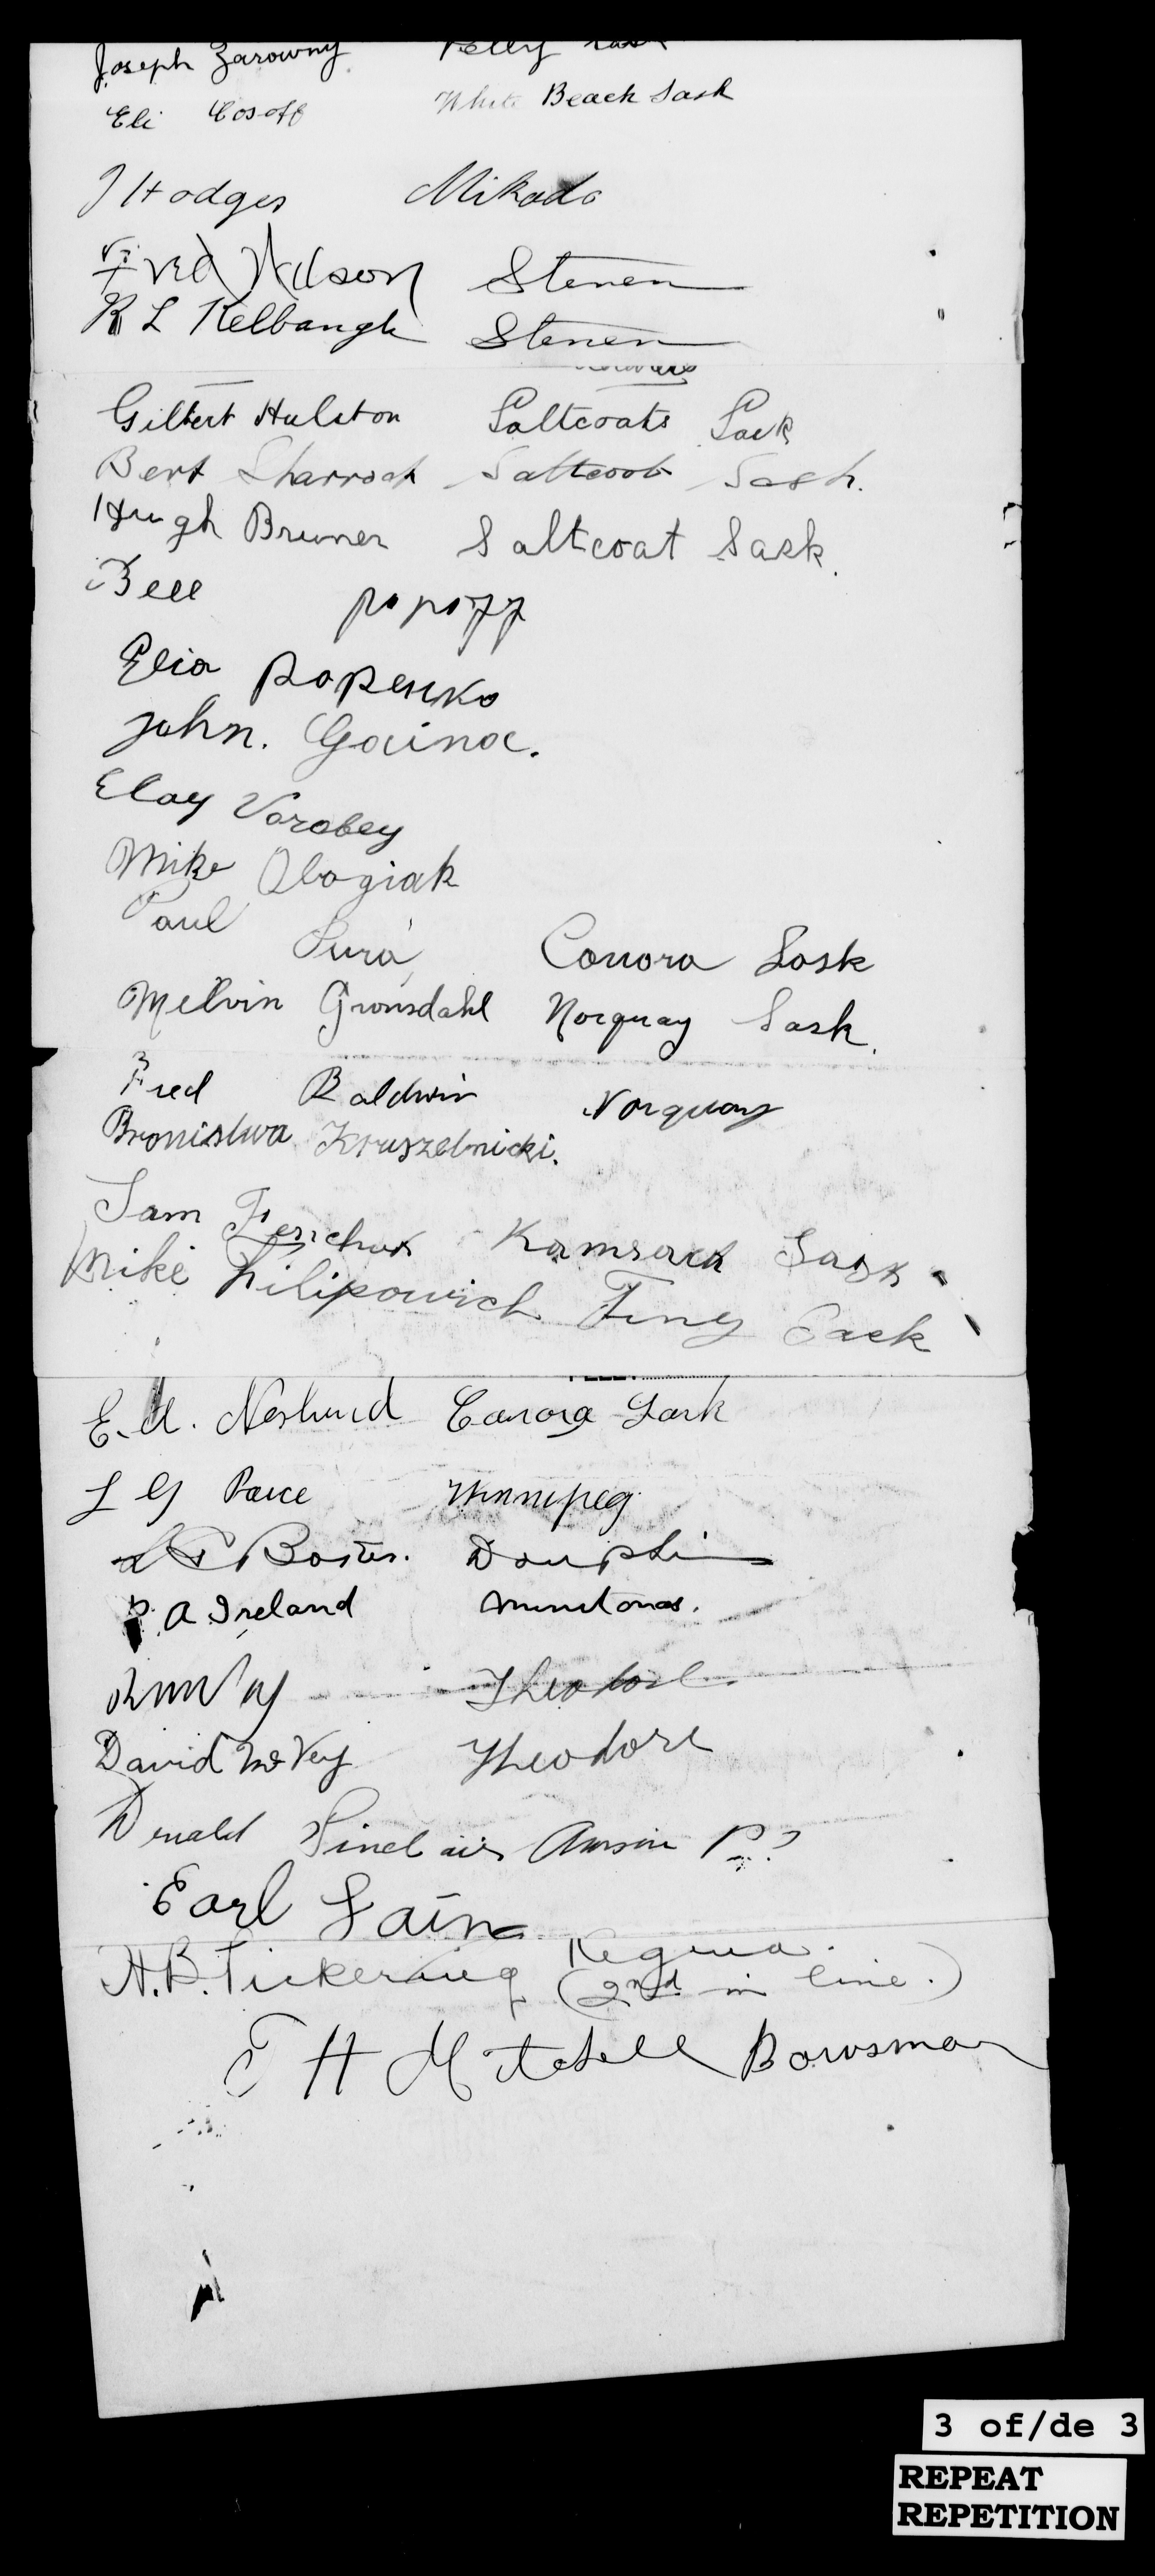 Joseph Zarowny Pelly Sask
Eli Cosoff White Beach Sask
J Hodges Mikado
Fred Wilson Stenen
R L Kelbaugh Stenen
Gilbert Hulston Saltcoats Sask
Bert Sharrock Saltcoats Sask.
Hugh Bruner Saltcoat Sask.
Bill popoff
Elia Popenko
John. Gaina.
Elay Vorobey
Mike Obogiak
Paul Sura Canora Sask
Melvin Gronsdahl Norquay Sask.
Fred Baldwin Norquay
Bronislwa Kruszelnicki.
Sam Kamsack Sask
Mike Filipowich Tiny Sask
E. A. Neslund Canora Sask
L G Paice Winnipeg
Bates. Dauphin
P. A Ireland Minitonas.
Theodore
David McVey Theodore
Donald Sinclair
Earl Laing
H. B. Pickering Regina.
(2nd in line.)
E H Mitchell Bowsman
3 of/de 3
REPEAT
REPETITION